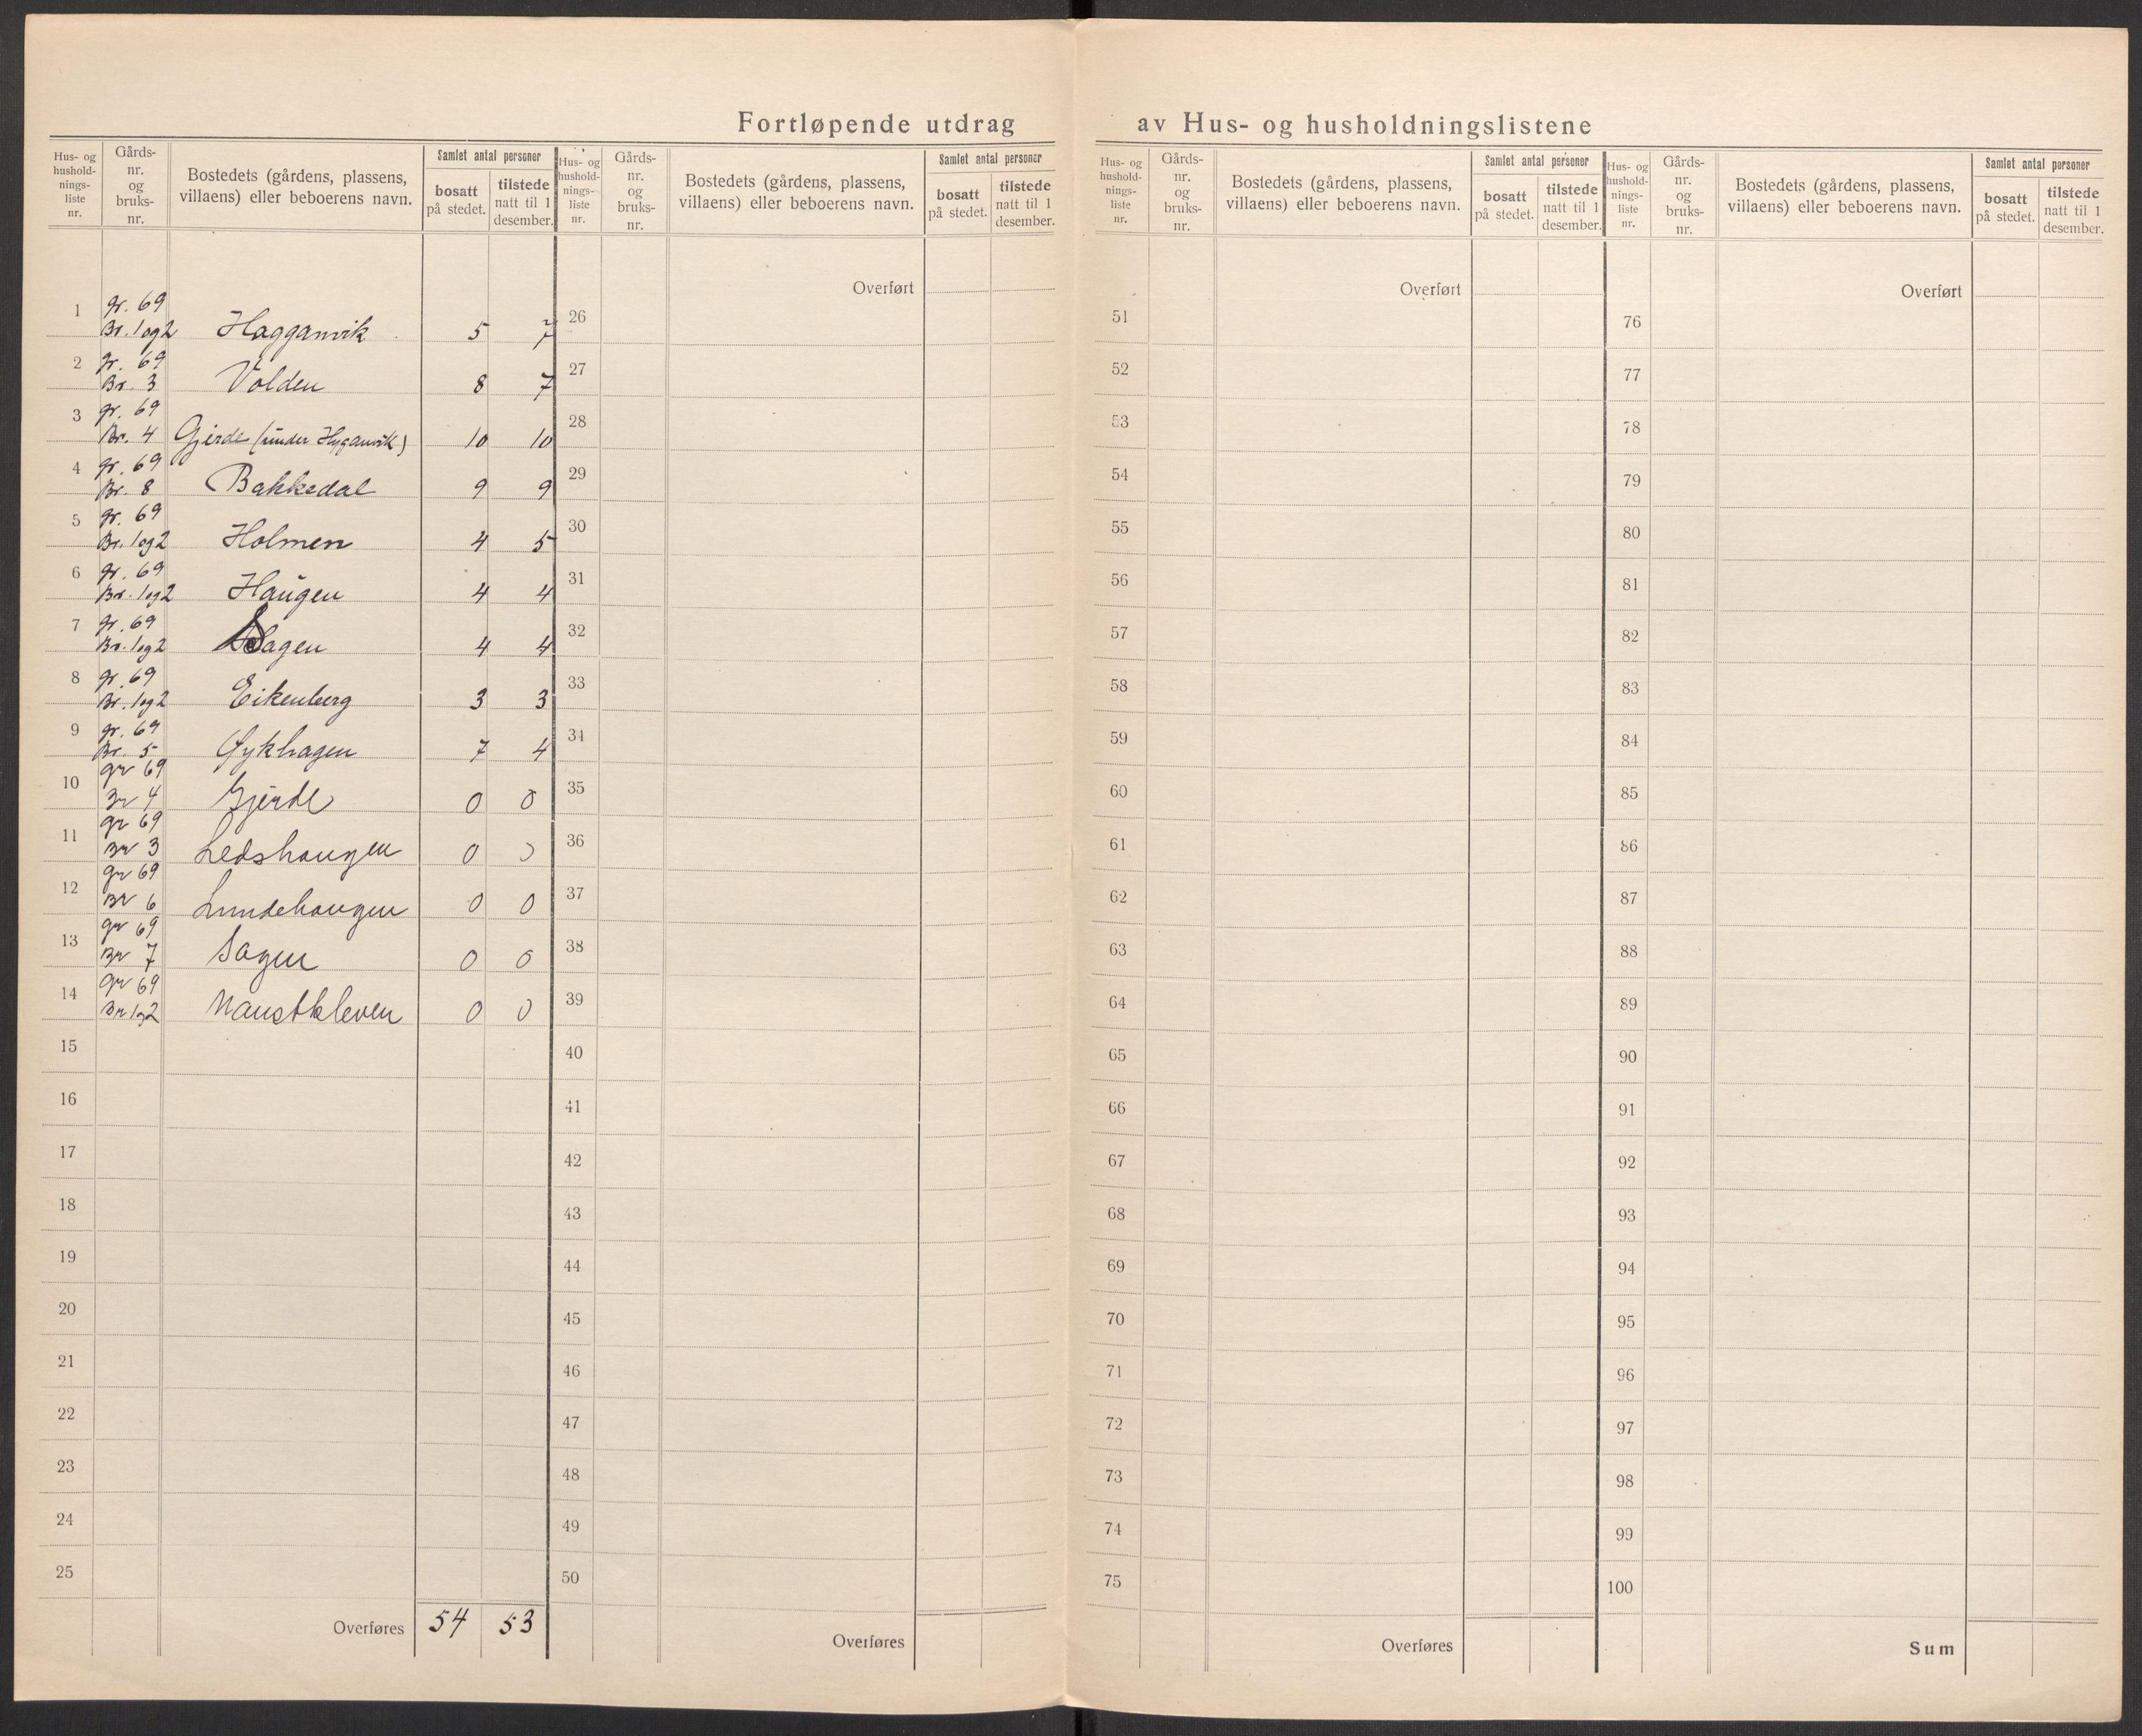 Fortløpende utdrag av Hus- og husholdningslistene
Hus- og hushold-nings-liste nr. Gårds-nr. og bruks-nr. Bostedets (gårdens, plassens, villaens) eller beboerens navn. Samlet antal personer bosatt på stedet. tilstede natt til 1 desember.
Hus- og hushold-nings-liste nr. Gårds-nr. og bruks-nr. Bostedets (gårdens, plassens, villaens) eller beboerens navn. Samlet antal personer bosatt på stedet. tilstede natt til 1 desember.
Hus- og hushold-nings-liste nr. Gårds-nr. og bruks-nr. Bostedets (gårdens, plassens, villaens) eller beboerens navn. Samlet antal personer bosatt på stedet. tilstede natt til 1 desember.
Hus- og hushold-nings-liste nr. Gårds-nr. og bruks-nr. Bostedets (gårdens, plassens, villaens) eller beboerens navn. Samlet antal personer bosatt på stedet. tilstede natt til 1 desember.
1 gr. 69
Br. 1 og 2 Hagganvik 5 7
2 gr. 69
Br. 3 Volden 8 7
3 gr. 69
Br. 4 Gjerde (under Hyganvik) 10 10
4 gr. 69
Br. 8 Bakkedal 9 9
5 gr. 69
Br. 1 og 2 Holmen 4 5
6 gr. 69
Br. 1 og 2 Haugen 4 4
7 gr. 69
Br. 1 og 2 Sagen 4 4
8 gr. 69
Br. 1 og 2 Eikenberg 3 3
9 gr. 69
Br. 5 Øykhagen 7 4
10 gr 69
Br 4 Gjerde 0 0
11 gr 69
Br 3 Ledshaugen 0 0
12 gr 69
Br 6 Lundehaugen 0 0
13 gr 69
Br 7 Sagen 0 0
14 gr 69
Br 1 og 2 Naustkleven 0 0
15
16
17
18
19
20
21
22
23
24
25
Overføres 54 53
Overført
26
27
28
29
30
31
32
33
34
35
36
37
38
39
40
41
42
43
44
45
46
47
48
49
50
Overføres
Overført
51
52
53
54
55
56
57
58
59
60
61
62
63
64
65
66
67
68
69
70
71
72
73
74
75
Overføres
Overført
76
77
78
79
80
81
82
83
84
85
86
87
88
89
90
91
92
93
94
95
96
97
98
99
100
Sum